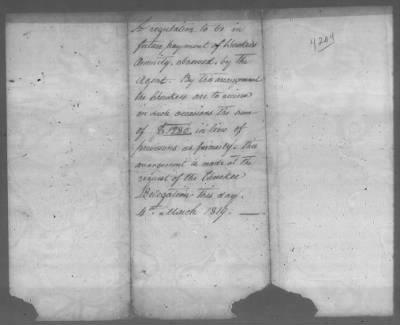 A regulation to be in
future, payment of Cherokees
Annuity, observed, by the
Agent. By this arrangement
the Cherokees are to receive
on such occasions the sum
of $1280. in lieu of
provisions as formerly. this
arrangement is made at the
request of the Cherokee
Delegation this day.
4th March 1819.
4204